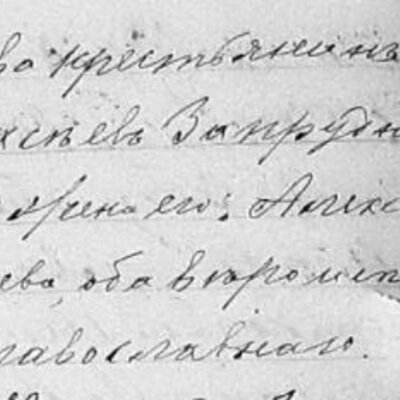 во крестьянинъ
ксѣевъ Запрудн
жена его, Алек
ева, оба вѣроисп
равославнаго.